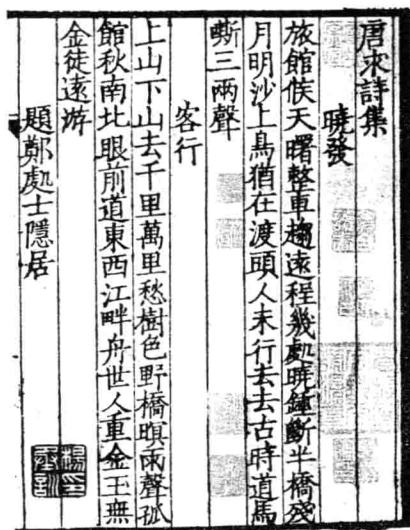 唐求詩集
曉發
旅館候天曙整車趨遠程幾處曉鍾斷半橋殘
月明沙上鳥猶在渡頭人未行去去古時道馬
嘶三兩聲
客行
上山下山去千里萬里愁樹色野橋暝雨聲孤
館秋南北眼前道東西江畔舟世人重金玉無
金徒遠游
題鄭處士隱居